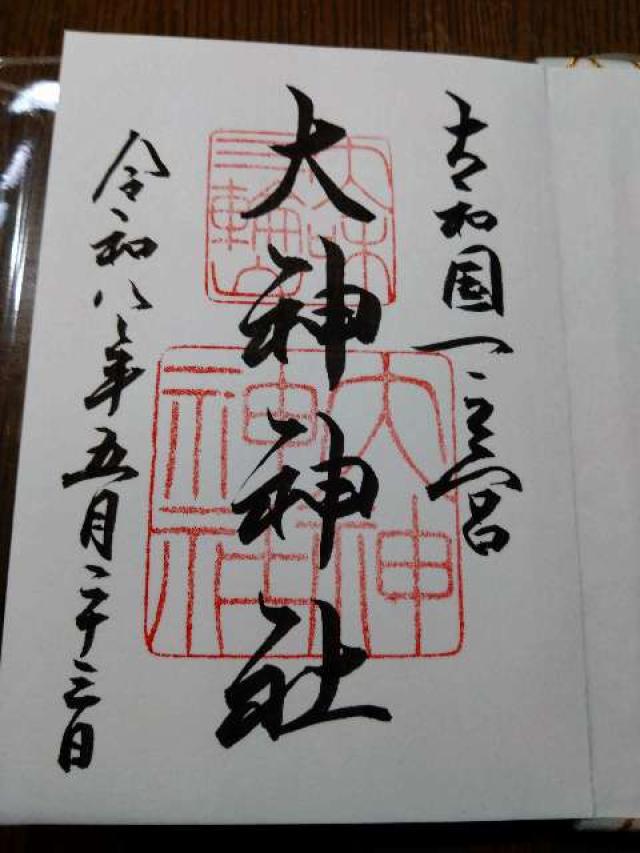 大和国一之宮
大和
三輪山
大神神社
大神
神社
令和八年五月二十三日